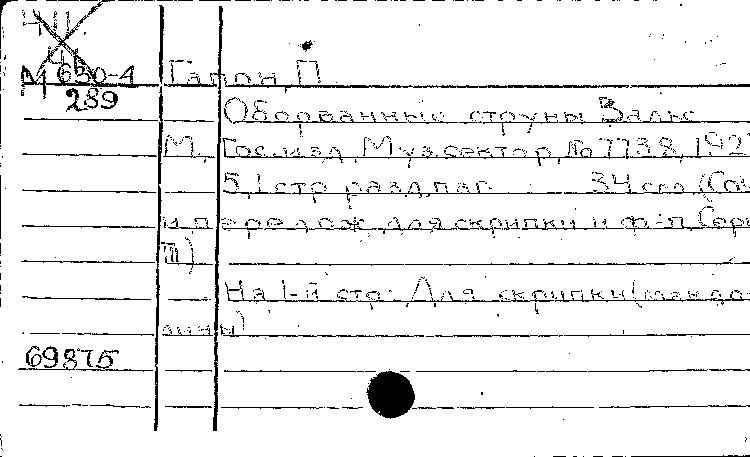 М 630-4 Гапон, П.
289
Оборванные струны Вальс
М., Гос.изд., Муз.сектор, № 7738, 192
5, 1 стр разд.паг 34 см (Соч
и перелож. для скрипки и ф-п Сери
III)
На 1-й стр: Для скрипки (мандо-
лины)
69875